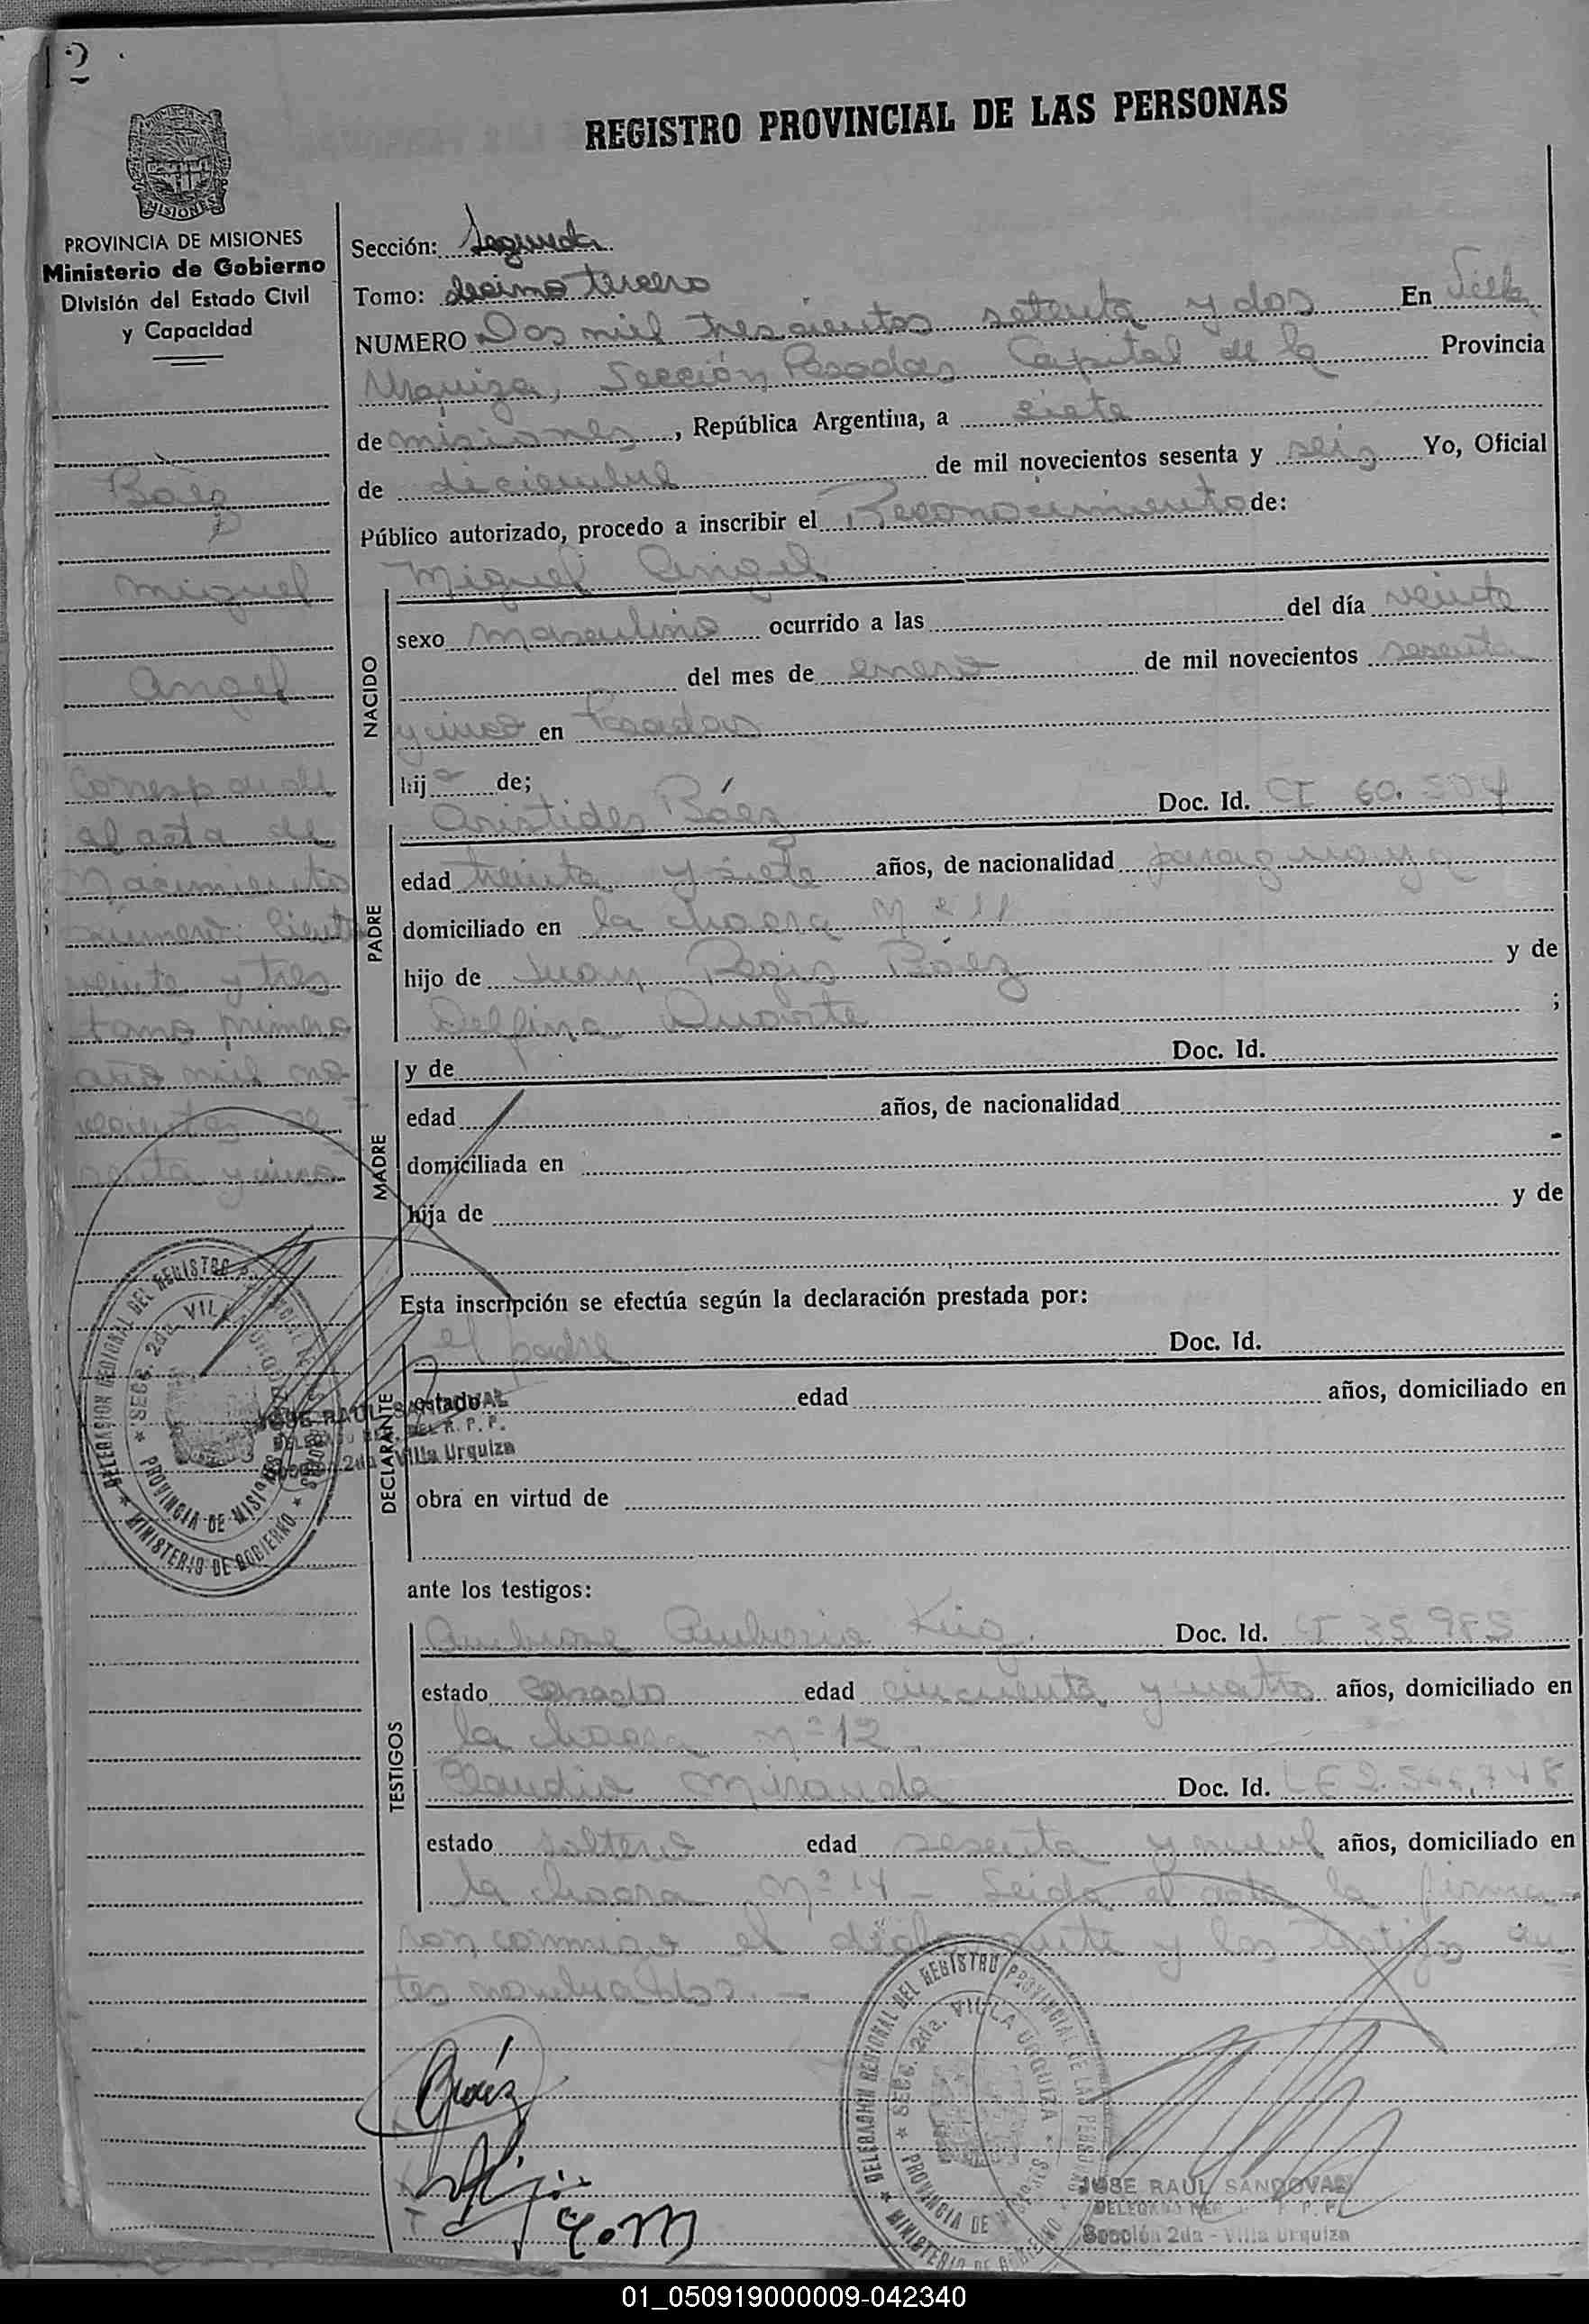 2
REGISTRO PROVINCIAL DE LAS PERSONAS
MISIONES
PROVINCIA DE MISIONES
Ministerio de Gobierno
División del Estado Civil
y Capacidad
Báez
Miguel
Angel
Corresponde
al acta de
Nacimiento
número: Ciento
veinte y tres
tomo primero
año mil no-
vecientos se-
senta y cinco
Sección: Segunda
Tomo: decimo tercero
NUMERO Dos mil trescientos setenta y dos En Villa
Urquiza, Sección Posadas Capital de la Provincia
de misiones, República Argentina, a siete
de diciembre de mil novecientos sesenta y seis Yo, Oficial
Público autorizado, procedo a inscribir el Reconocimiento de:
NACIDO
Miguel Angel
sexo masculino ocurrido a las del día veinte
del mes de enero de mil novecientos sesenta
y cinco en Posadas
hijo de;
PADRE
Aristides Báez Doc. Id. CI 60.574
edad treinta y siete años, de nacionalidad paraguaya
domiciliado en la chacra Nº 11
hijo de Juan Regis Báez y de
Delfina Duarte ;
MADRE
y de Doc. Id.
edad años, de nacionalidad
domiciliada en
hija de y de
Esta inscripción se efectúa según la declaración prestada por:
DECLARANTE
el padre Doc. Id.
estado edad años, domiciliado en
obra en virtud de
ante los testigos:
TESTIGOS
Doc. Id. CI 35.985
estado Casado edad cincuenta y cuatro años, domiciliado en
la chacra nº 12
Claudio Miranda Doc. Id. LE 2.546.748
estado soltero edad sesenta y nueve años, domiciliado en
la chacra Nº 14 - Leida el acta la firma-
ron conmigo el declarante y los testigos an
tes nombrados. -
DELEGACION REGIONAL DEL REGISTRO PROVINCIAL DE LAS PERSONAS
* SECC. 2da. VILLA URQUIZA *
PROVINCIA DE MISIONES
* MINISTERIO DE GOBIERNO *
JOSE RAUL SANDOVAL
DELEGADO REG. DEL R. P. P.
Sección 2da - Villa Urquiza
Báez
C. M
DELEGACION REGIONAL DEL REGISTRO PROVINCIAL DE LAS PERSONAS
* SECC. 2da. VILLA URQUIZA *
PROVINCIA DE MISIONES
* MINISTERIO DE GOBIERNO
JOSE RAUL SANDOVAL
DELEGADO REG. DEL R. P. P.
Sección 2da - Villa Urquiza
01_050919000009-042340